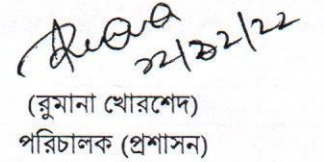 ২২/১২/২২
(রুমানা খোরশেদ)
পরিচালক (প্রশাসন)